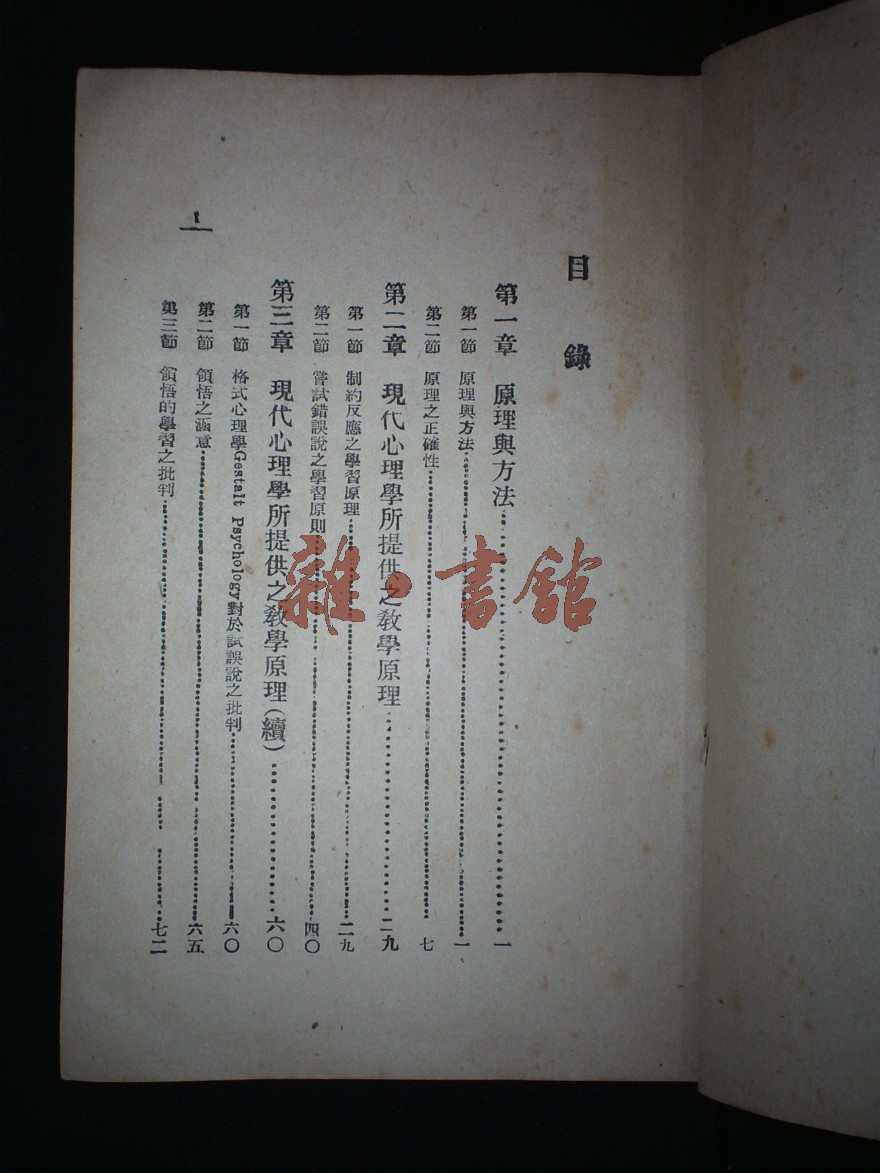 目錄
第一章 現原理與方法……一
第一節 原理與方法……一
第二節 原理之正確性……七
第二章 現代心理學所提供之教學原理……二九
第一節 制約反應之學習原理……二九
第二節 嘗試錯誤說之學習原則……四〇
第三章 現代心理學所提供之教學原理(續)……六〇
第一節 格式心理學Gestalt Psychology對於試誤說之批判……六〇
第二節 領悟之涵意……六五
第三節 領悟的學習之批判……七二
1
雜·書館